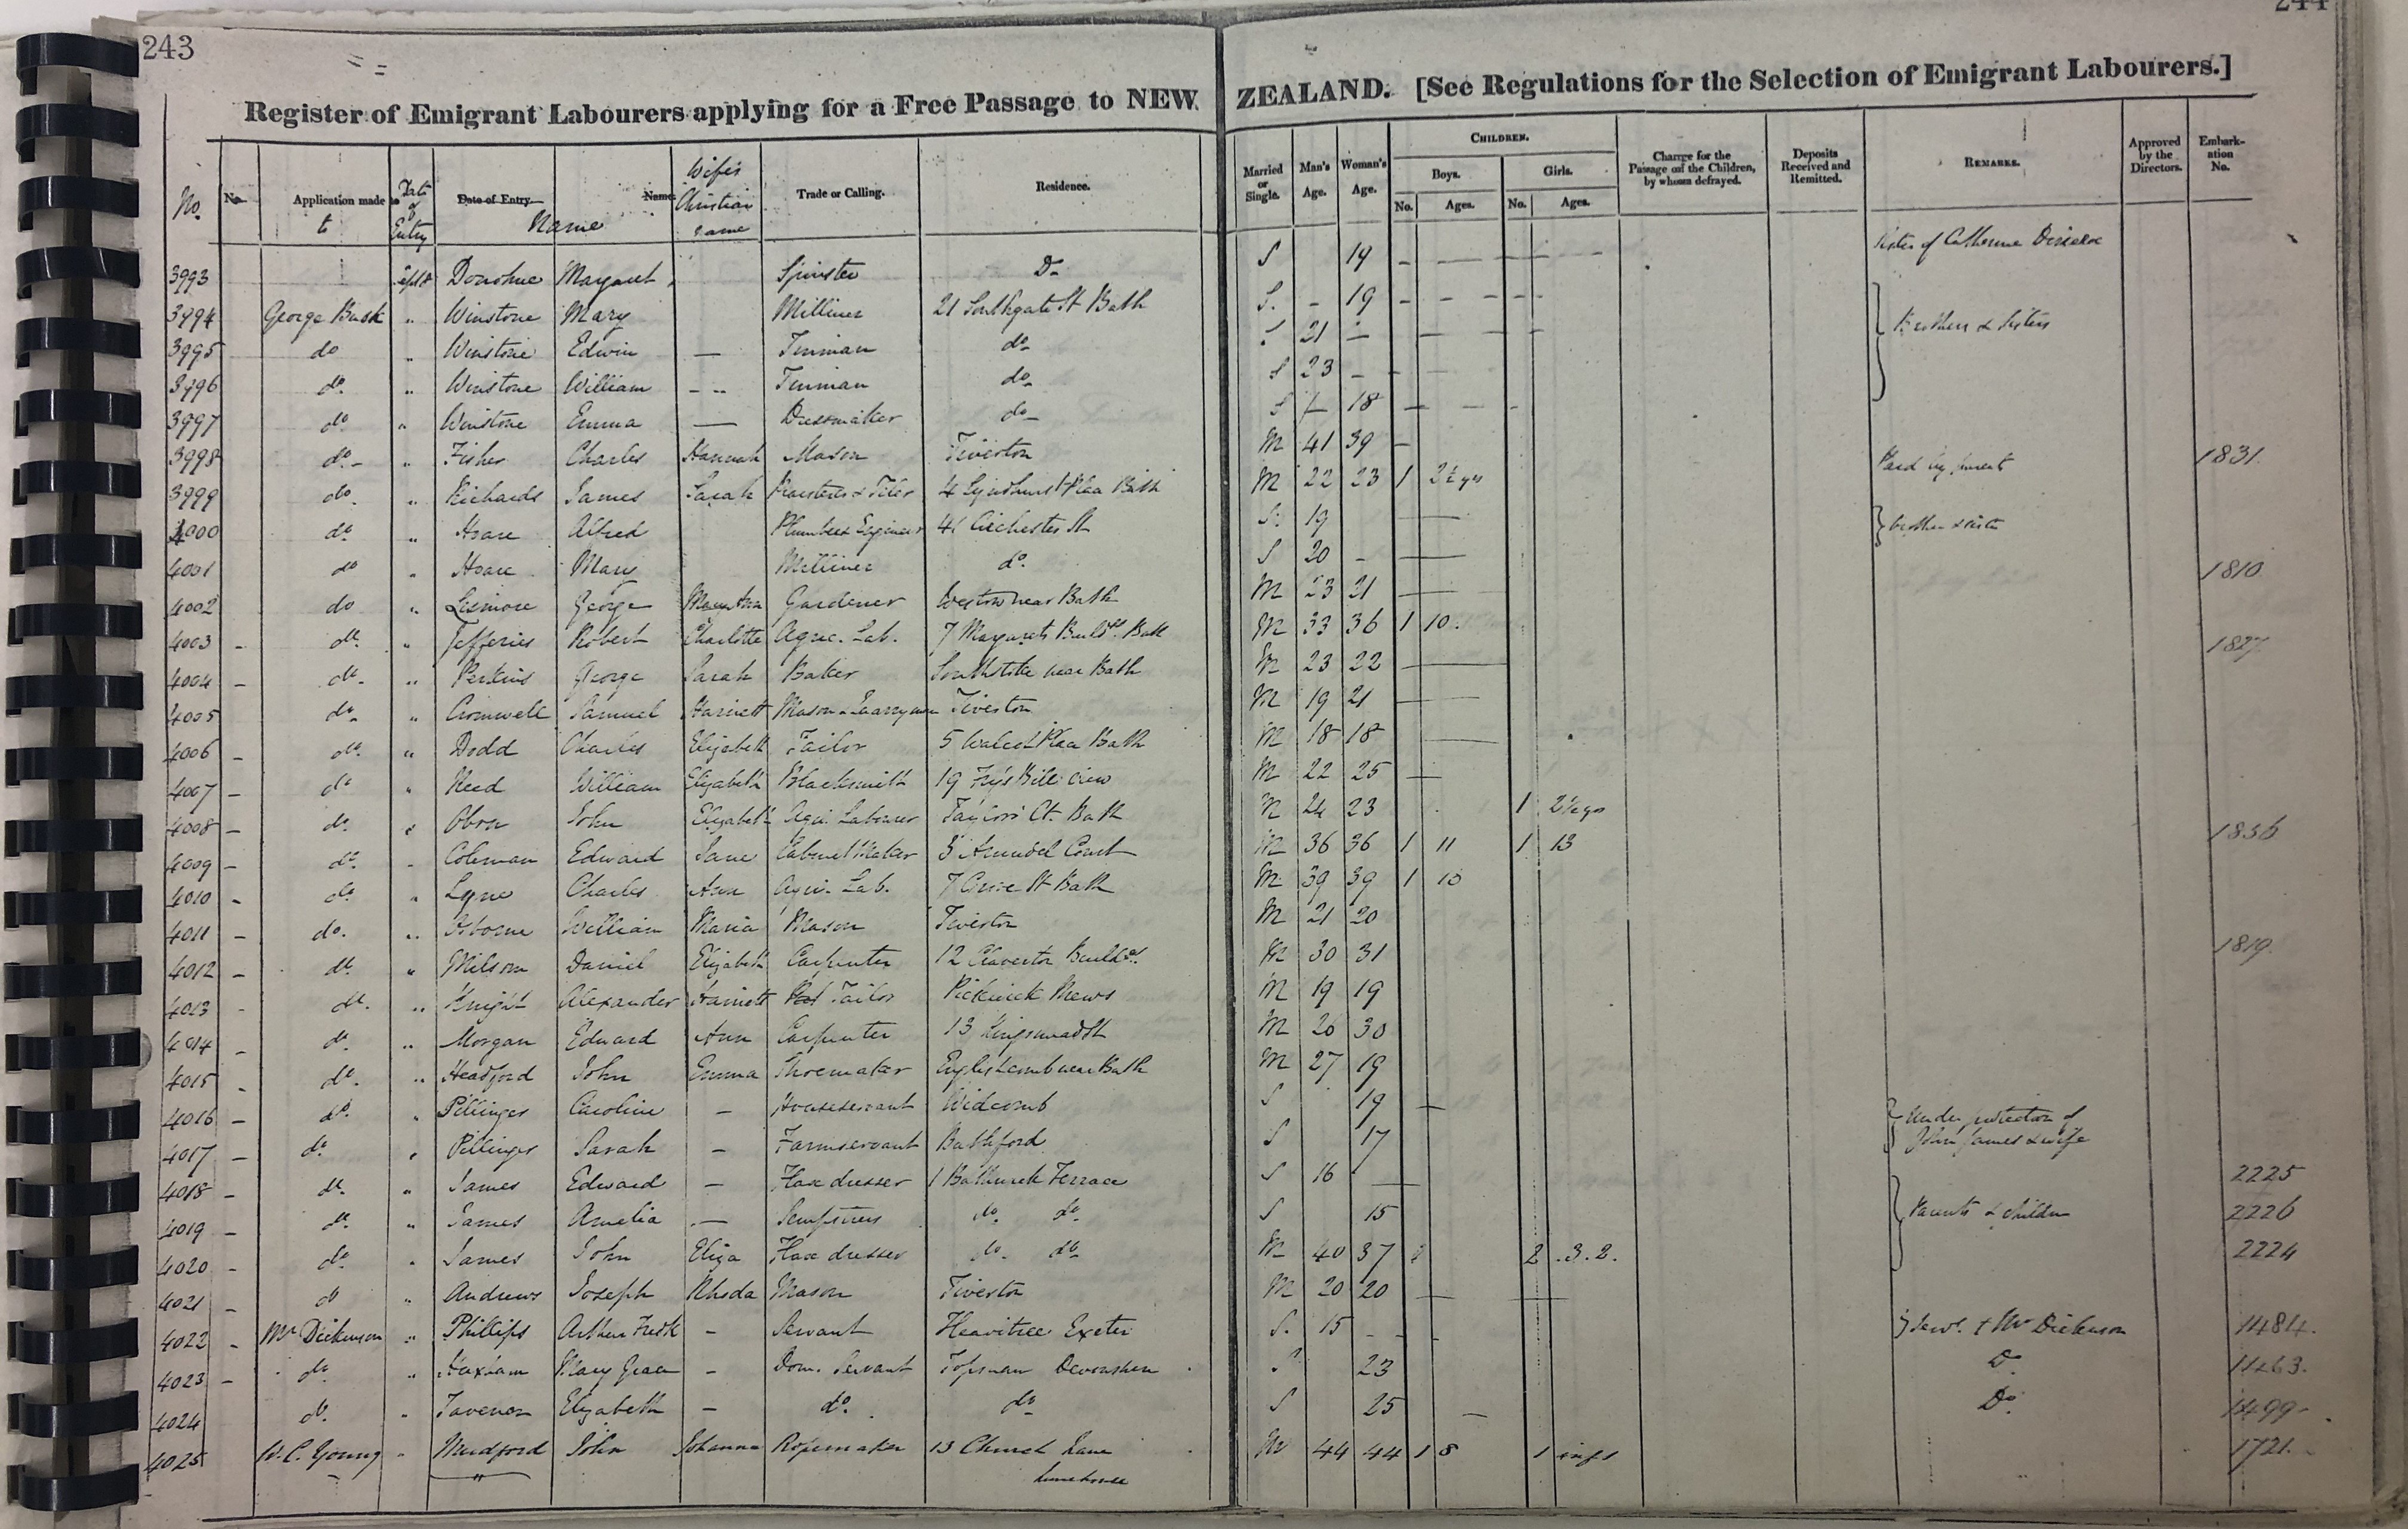 243
244
Register of Emigrant Labourers applying for a Free Passage to NEW ZEALAND. [See Regulations for the Selection of Emigrant Labourers.]
No. No. Application made to Date of Entry Date of Entry Name Name. Wife's Christian name Trade or Calling. Residence. Married or Single. Man's Age. Woman's Age. CHILDREN. Boys. No. Ages. Girls. No. Ages. Charge for the Passage of the Children, by whom defrayed. Deposits Received and Remitted. REMARKS. Approved by the Directors. Embarkation No.
3993 Sept 8 Donohue Margaret Spinster Do S 19 Sister of Catherine
3994 George Bush " Winstone Mary Milliner 21 Southgate St Bath S. - 19
3995 do " Winstone Edwin — Tinman do S 21 — Brothers & Sisters
3996 do. " Winstone William - - Tinman do S 23 -
3997 do " Winstone Emma — Dressmaker do S 18
3998 do. " Fisher Charles Hannah Mason Tiverton M 41 39 — 1831
3999 do. " Richards James Sarah & Tiler 4 Lyndhurst Place Bath M 22 23 1 2½ yrs Paid by parents
4000 do. " Hoare Alfred Plumber & Engineer 41 St S. 19 — brother & sister
4001 do " Hoare Mary Milliner do. S 20 - — 1810
4002 do " Lismore George Mary Ann Gardener Weston near Bath M 23 21 —
4003 - do. " Jefferies Robert Charlotte Agric. Lab. 7 Margarets Builds. Bath M 33 36 1 10. 1827
4004 - do. " Perkins George Sarah Baker Southstoke near Bath M 23 22 —
4005 do. " Cromwell Samuel Harriett Mason & Quarryman Tiverton M 19 21 —
4006 - do. " Dodd Charles Elizabeth Tailor 5 Walcot Place Bath M 18 18 —
4007 - do " Reed William Elizabeth Blacksmith 19 view M 22 25 —
4008 - do. " John Elizabeth Agri. Labourer Taylors Ct. Bath M 24 23 1 2½ yrs
4009 - do. " Coleman Edward Jane Cabinet Maker 5 Arundel Court M 36 36 1 11 1 13 1836
4010 - do " Lyne Charles Ann Agri. Lab. 7 St Bath M 39 39 1 10
4011 - do. " Osborne William Maria Mason Tiverton M 21 20
4012 - do. " Milsom Daniel Elizabeth Carpenter 12 Claverton Builds. M 30 31 1819
4013 - do. " Knight Alexander Harriett Tailor Pickwick Mews M 19 19
4014 - do. " Morgan Edward Ann Carpenter 13 Kingsmead St M 26 30
4015 - do. " Headford John Emma Shoemaker Englishcomb near Bath M 27 19
4016 - do. " Pillinger Caroline - Houseservant Widcomb S 19 — Under protection of
4017 - do. " Pillinger Sarah - Farmservant Bathford S 17 John James & wife
4018 - do. " James Edward - Flax dresser 1 Bathwick Terrace S 16 — 2225
4019 - do. " James Amelia — Sempstress do. do. S 15 Parents & children 2226
4020 - do. " James John Eliza Flax dresser do. do. M 40 37 2 .3.2. 2224
4021 - do " Andrews Joseph Rhoda Mason Tiverton M 20 20 — —
4022 - Mr Dickinson " Phillips Arthur Fredk - Servant Heavitree Exeter S. 15 - - Servt. to Mr Dickenson 1484.
4023 - do. " Haxham Mary Grace - Dom. Servant Topsham Devonshire S 23 Do 1463.
4024 do. " Tavenor Elizabeth - do. do S 25 — Do. 1499
4025 W.C. Young " Mudford John Johanna Ropemaker 13 Church Lane M 44 44 1 8 1 inft 1721.
Limehouse